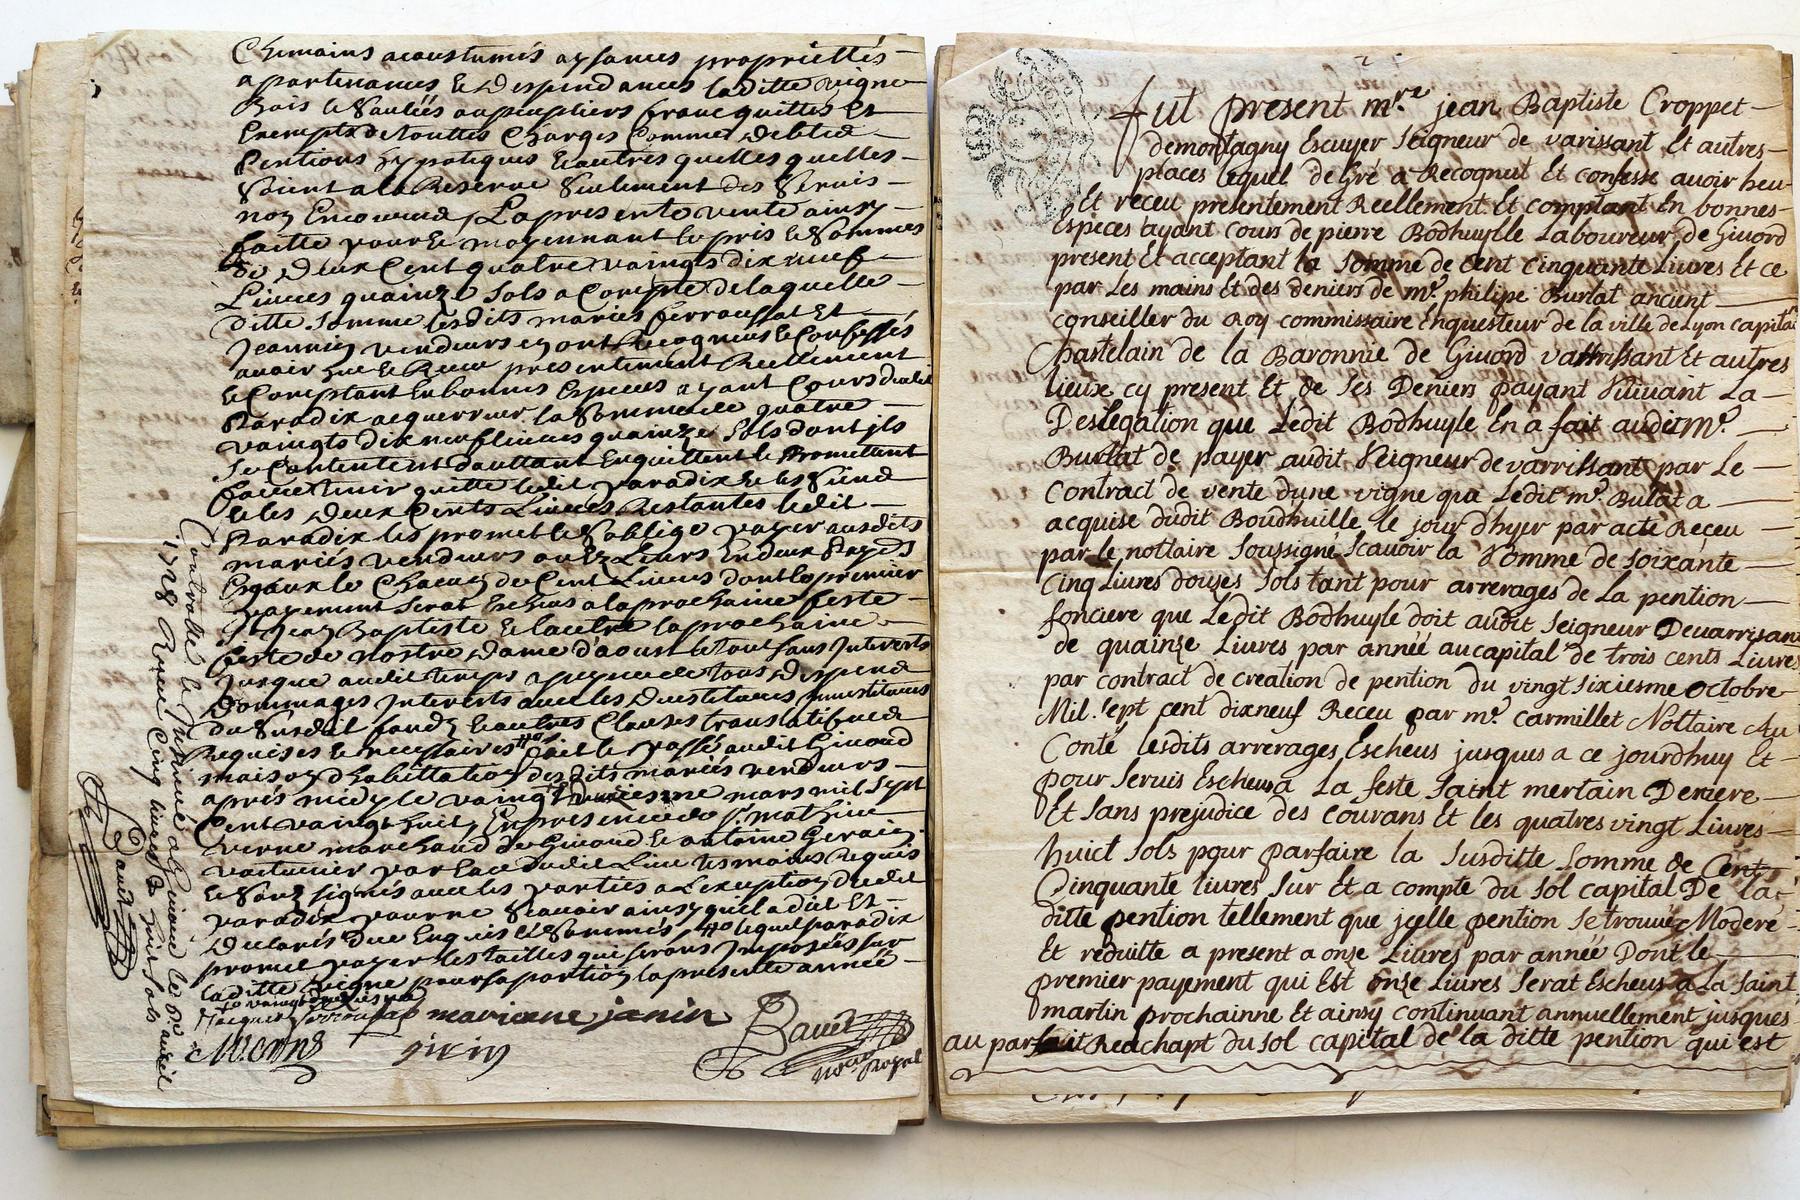 Chemains acoustumés aysances propriettés
apartenances & despendances laditte vigne
Bois & Saulés ou peupliers franc quitte & Et
Exempte de touttes Charges Comme debtes
Pentions hypoteques & autres quelles quelles
Soient a la Reserve Seulement des Servis
non Encourus, La presente vente ainsy
faitte pour & moyennant le pris & Sommes
de deux Cent quatre vaingts dix neuf
Livres quainze Sols a Compte de laquelle
ditte Somme lesdits mariés ferroussat Et
Jeannin vendeurs ont Recogneus & Confessés
avoir heu & Receu presentement Reellement
& Comptant En bonnes Especes ayant Cours dudit
Paradix acquerreur la Somme de quatre
vaingts dix neuf livres quainze Sols dont ils
Se Contentent d'auttant En quittent & Promettent
faire tenir quitte ledit paradix & les Siens
& les deux Cents Livres Restantes ledit
Paradix les promet & S'oblige payer ausdits
mariés vendeurs ou Ez Leurs En deux Payes
Esgaux le Chacun de Cent Livres dont le premier
payement Serat Escheus a la prochaine feste
St Jean Baptiste & lautre la prochaine
feste de nostre dame d'aoust le tout Sans Interets
Jusque audit temps a peyne de tous despend
Dommages Interets avec les Devestitures Investitures
du Susdit fondz & autres Clauses translatifves
Requises & necessaires fait & passé audit Givord
maison d'habittation desdits mariés vendeurs
aprés midy le vaingt mars mil Sept
Cent vaingt huit, En presence de Sr. mathieu
Verne marchand de Givord & antoine Gerain
voiturier par Eau dudit Lieu tesmoins Requis
& Sous signés avec les parties a L'exeption dudit
paradix pour ne Scavoir ainsy qu'il a dit Et
Declaré due Enquis & Sommé lequel paradix
promet payer les tailles qui seront Imposées sur
laditte vigne pour sa portion la presente année
mariane janin
Bauet
Verne
notre Royal
Controllé & Insinué a Givord le
1728 Receu Cinq livres huit Sols
Bauet
2
Fut present mre jean Baptiste Croppet
demontagny Escuyer Seigneur de varissant Et autres
places lequel de Gré a Recognut Et confesse avoir heu
Et receu presentement Reellement Et comptant En bonnes
Especes ayant Cours de pierre Bodhuylle Laboureur de Givord
present Et acceptant la Somme de Cent Cinquante Livres Et ce
par Les mains Et des deniers de mr. philipe Burlat ancient
conseiller du Roy commissaire Enquesteur de la ville de Lyon capita
Chastelain de la Baronnie de Givord varrissant Et autres
lieux cy present Et de Ses Deniers payant Suivant La
Deslegation que Ledit Bodhuyle En a fait audit Mr.
Burlat de payer audit Seigneur de varrissant par Le
Contract de vente d'une vigne que Ledit mr. Bulat a
acquise dudit Boudhuille le jour d'hyer par acte Receu
par le nottaire Soussigné, Scavoir la Somme de Soixante
Cinq Livres douzes Sols tant pour arrerages de La pention
fonciere que Ledit Bodhuyle doit audit Seigneur Devarrisant
de quainze Livres par année au capital de trois cents Livres
par contract de creation de pention du vingt sixiesme octobre
Mil. Sept cent dixneuf Receu par mr. Carmillet Nottaire Au
Conté lesdits arrérages Escheus jusques a ce jourdhuy Et
pour Servis Escheus a La feste Saint mertain Derniere
Et Sans prejudice des Courans Et les quatres vingt Livres
huict Sols pour parfaire la Susditte Somme de Cent
Cinquante livres Sur Et a compte du Sol capital De la
ditte pention tellement que jcelle pention Se trouve Moderé
Et reduitte a present a onse Livres par année Dont le
premier payement qui Est onze Livres Serat Escheus a La Saint
martin prochainne Et ainsy continuant annuellement jusques
au parfait Reachapt du Sol capital de la ditte pention qui est